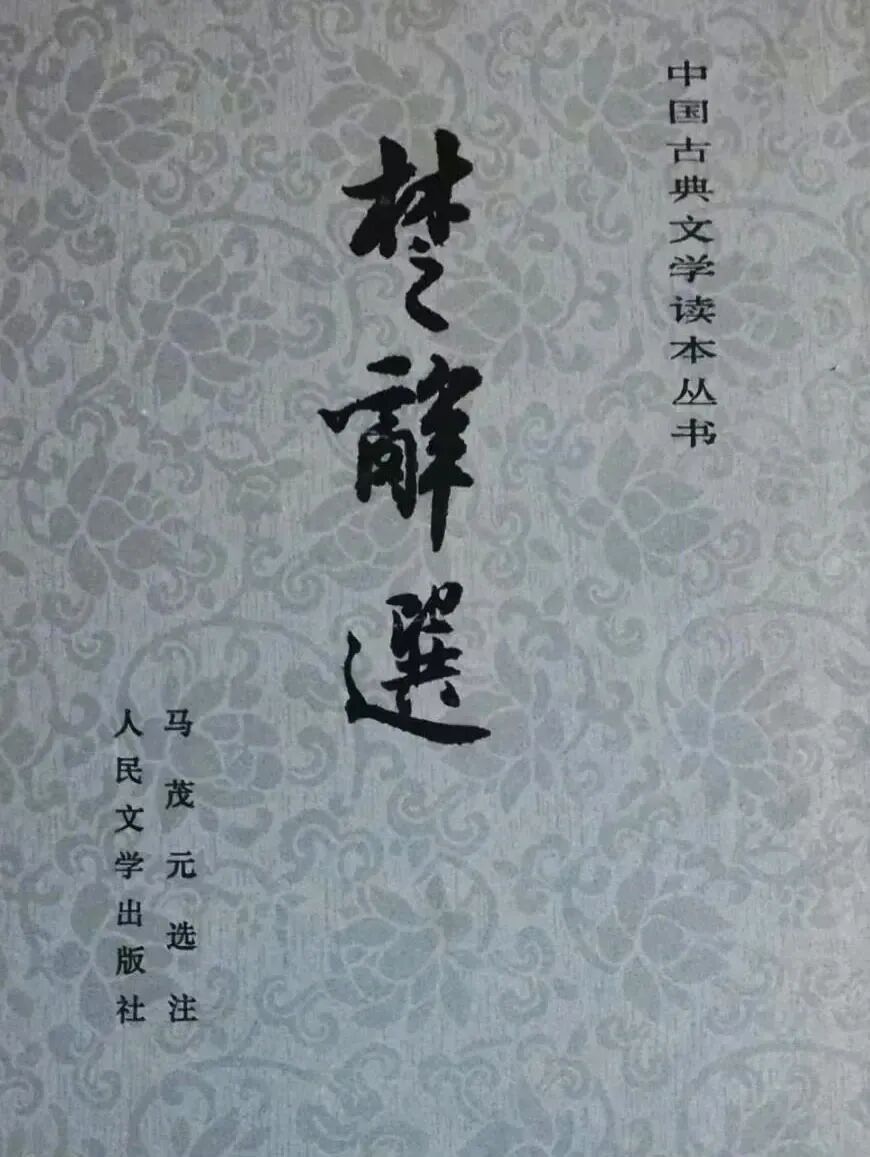 中国古典文学读本丛书
楚辭選
马茂元选注
人民文学出版社